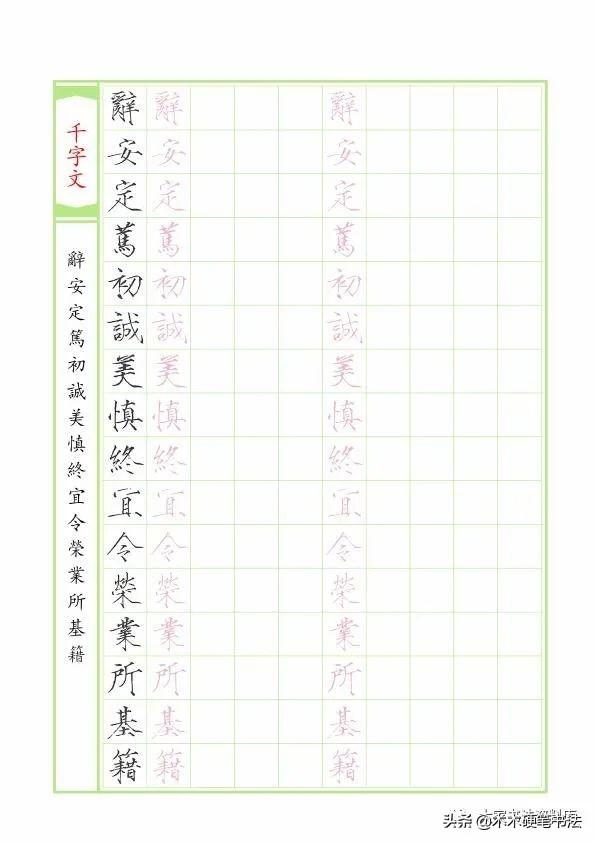 千字文
辭安定篤初誠美慎終宜令榮業所基籍
辭安定篤初誠美慎終宜令榮業所基籍
辭安定篤初誠美慎終宜令榮業所基籍
辭安定篤初誠美慎終宜令榮業所基籍
头条 @木木硬笔书法